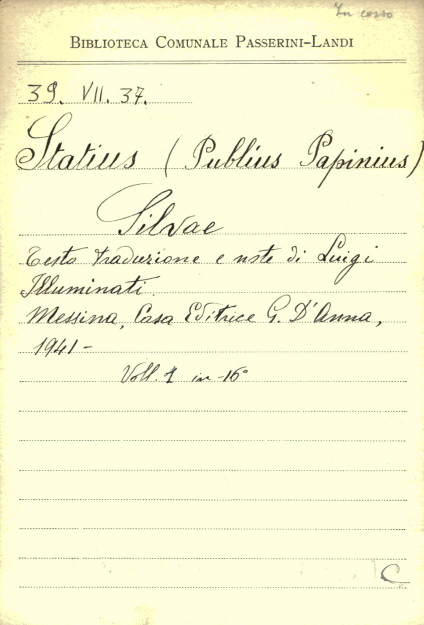 In corso
BIBLIOTECA COMUNALE PASSERINI-LANDI
39. VII. 37.
Statius (Publius Papinius)
Silvae
Testo traduzione e note di Luigi
Illuminati.
Messina, Casa Editrice G. D'Anna,
1941-
Voll. 1 in-16°
C